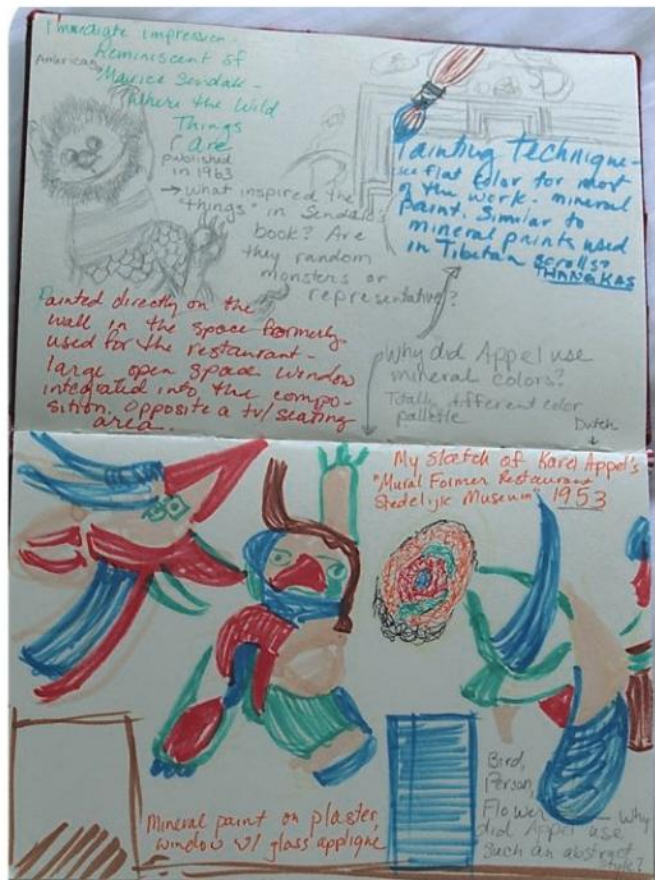 Immediate impression -
Reminiscent of
American
Maurice Sendak -
Where the Wild
Things
are
published
in 1963
→ What inspired the
"things" in Sendak's
book? Are
they random
monsters or
representative?
Painting technique -
use flat color for most
of the work. mineral
paint. Similar to
mineral paints used
in Tibetan scrolls?
THANGKAS
Painted directly on the
wall in the space formerly
used for the restaurant -
large open space. Window
integrated into the compo-
sition. Opposite a tv/seating
area.
Why did Appel use
mineral colors?
Totally different color
pallette
Dutch
My sketch of Karel Appel's
"Mural Former Restaurant
Stedelijk Museum" 1953
Mineral paint on plaster,
window w/ glass applique
Bird,
Person,
Flower — Why
did Appel use
such an abstract
style?